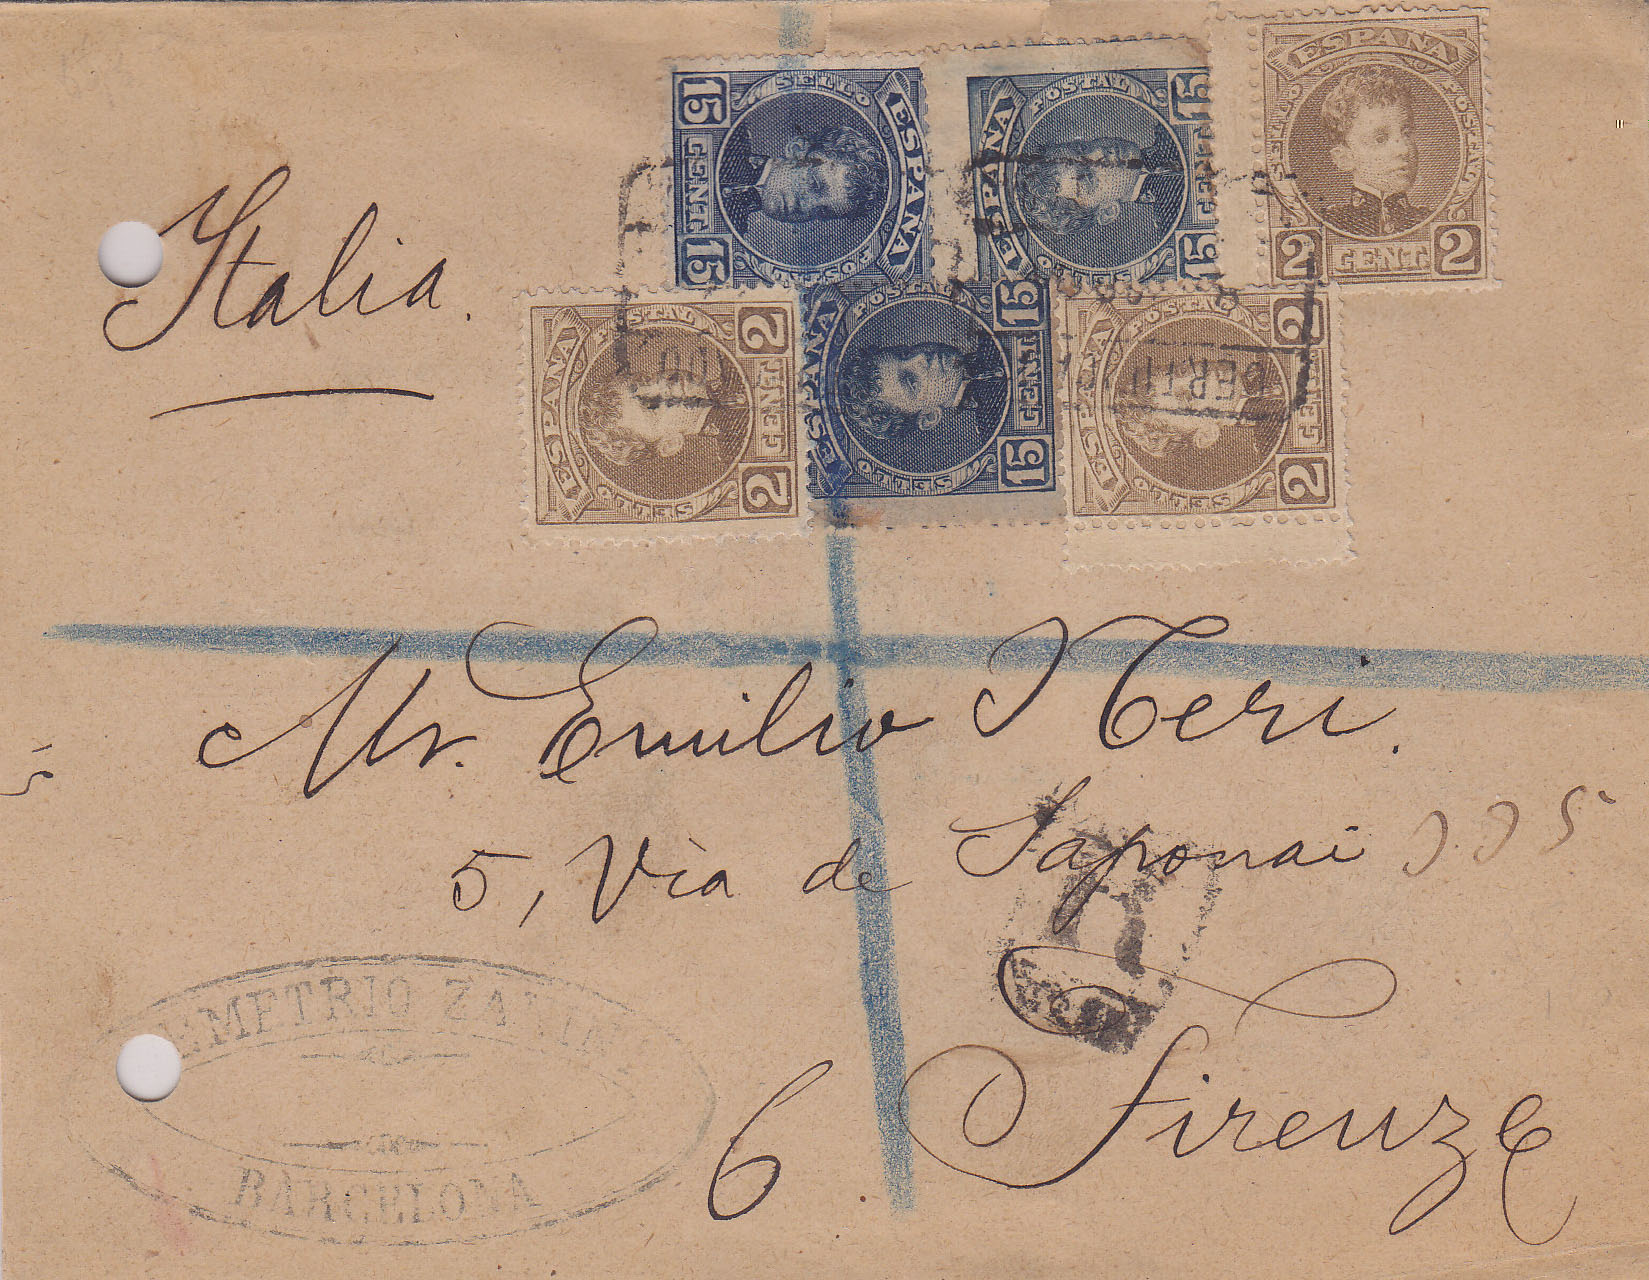 SELLO POSTAL
ESPAÑA
15 CENT 15
ESPAÑA
SELLO POSTAL
15 CENT 15
ESPAÑA
SELLO POSTAL
2 CENT. 2
Italia.
ESPAÑA
SELLO POSTAL
2 CENT 2
ESPAÑA
SELLO POSTAL
15 CENT 15
ESPAÑA
SELLO POSTAL
2 CENT 2
Mr. Emilio Neri.
5, Via de Saponai
R
6 Firenze
DEMETRIO
BARCELONA